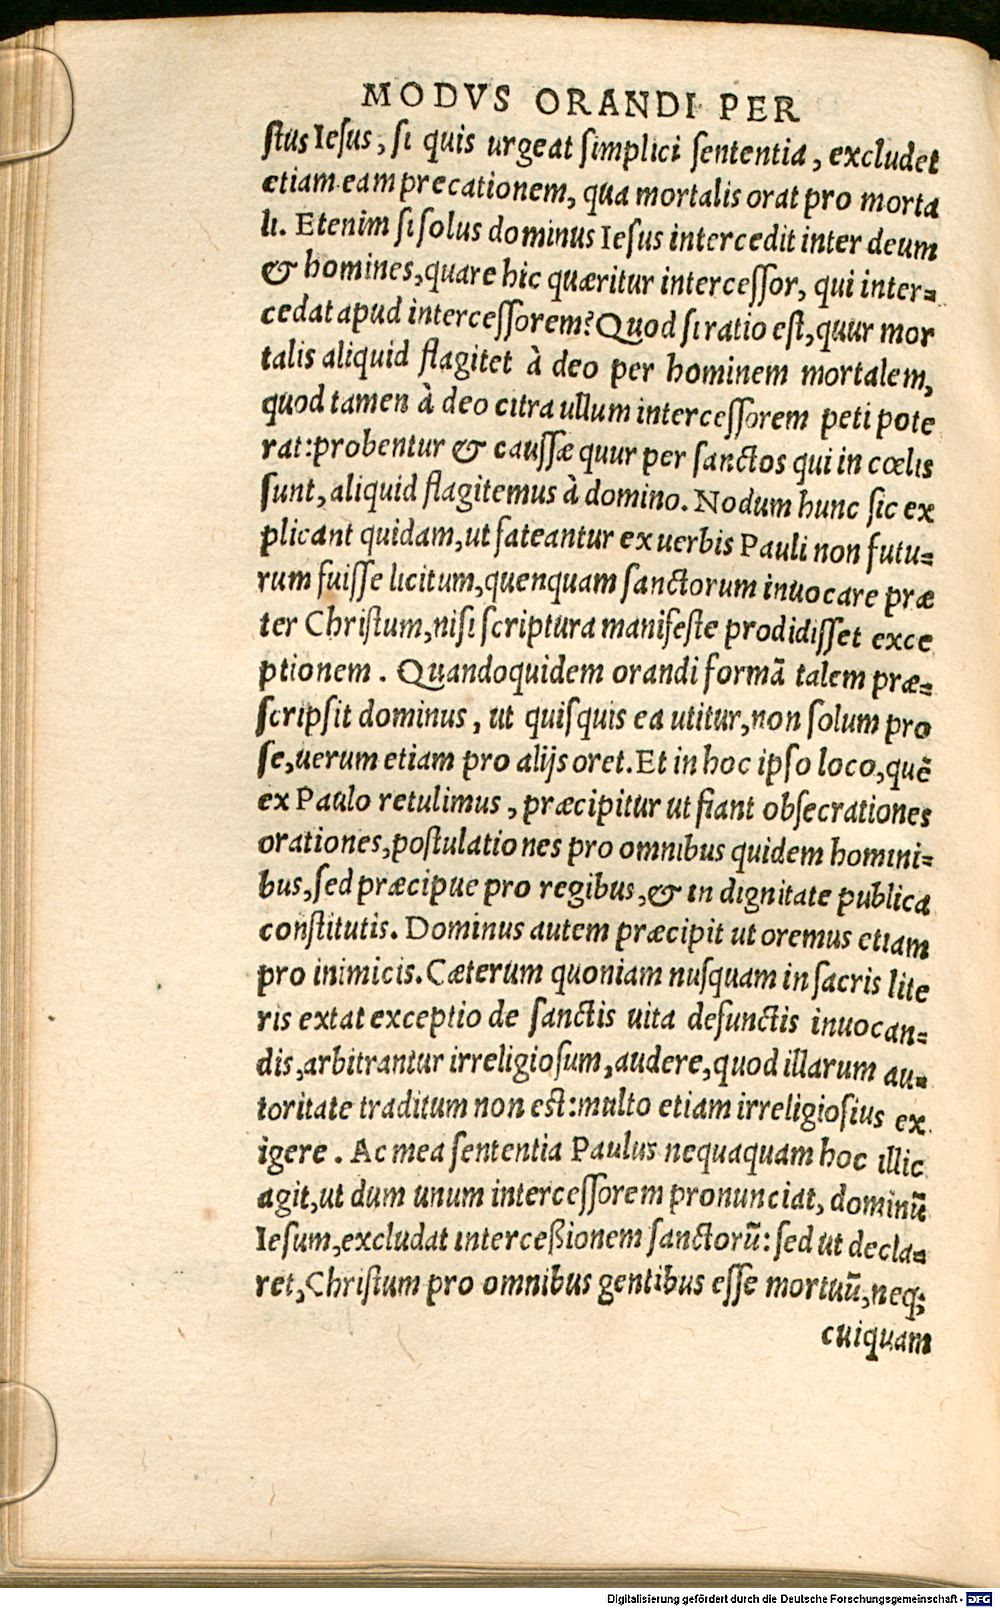 MODVS ORANDI PER
stus Iesus, si quis urgeat simplici sententia, excludet
etiam eam precationem, qua mortalis orat pro morta
li. Etenim si solus dominus Iesus intercedit inter deum
& homines, quare hic quæritur intercessor, qui inter-
cedat apud intercessorem? Quod si ratio est, quur mor
talis aliquid flagitet à deo per hominem mortalem,
quod tamen à deo citra ullum intercessorem peti pote
rat: probentur & caussæ quur per sanctos qui in cœlis
sunt, aliquid flagitemus à domino. Nodum hunc sic ex
plicant quidam, ut fateantur ex uerbis Pauli non futu-
rum fuisse licitum, quenquam sanctorum inuocare præ
ter Christum, nisi scriptura manifeste prodidisset exce
ptionem. Quandoquidem orandi formā talem præ-
scripsit dominus, ut quisquis ea utitur, non solum pro
se, uerum etiam pro alijs oret. Et in hoc ipso loco, quē
ex Paulo retulimus, præcipitur ut fiant obsecrationes
orationes, postulationes pro omnibus quidem homini-
bus, sed præcipue pro regibus, & in dignitate publica
constitutis. Dominus autem præcipit ut oremus etiam
pro inimicis. Cæterum quoniam nusquam in sacris lite
ris extat exceptio de sanctis uita defunctis inuocan-
dis, arbitrantur irreligiosum, audere, quod illarum au-
toritate traditum non est: multo etiam irreligiosius ex
igere. Ac mea sententia Paulus nequaquam hoc illic
agit, ut dum unum intercessorem pronunciat, dominū
Iesum, excludat interceßionem sanctorū: sed ut decla-
ret, Christum pro omnibus gentibus esse mortuū, neq;
cuiquam
Digitalisierung gefördert durch die Deutsche Forschungsgemeinschaft - DFG